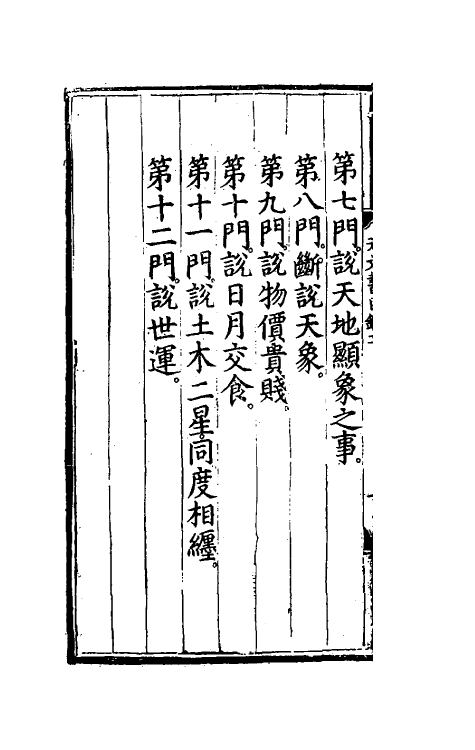 第七門。說天地顯象之事。
第八門。斷說天象。
第九門。說物價貴賤。
第十門。說日月交食。
第十一門。說土木二星。同度相纏。
第十二門。說世運。